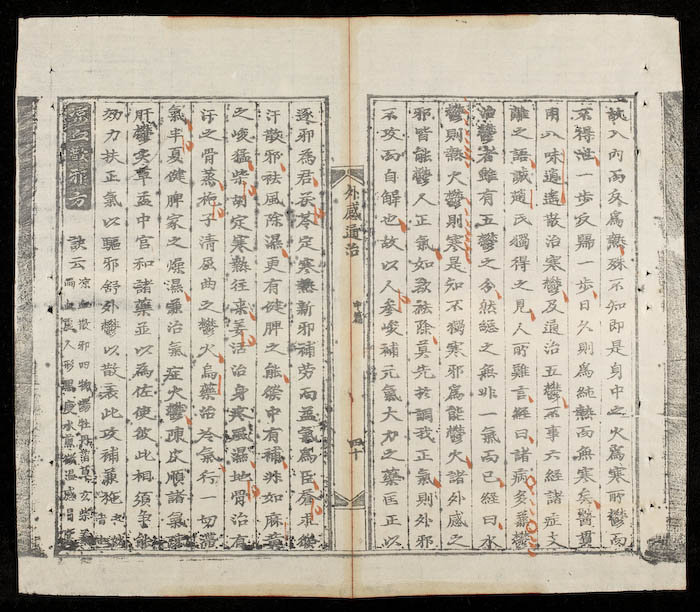 入内而反爲熱殊不知即是身中之火爲寒所鬱而
不得泄一步反歸一步日久則爲純熱而無寒矣醫貫
用八味逍遙散治寒鬱及通治五鬱不事六經諸症支
離之語誠趙氏獨得之見人所難言經曰諸病多兼鬱
治鬱者雖有五鬱之分然總之無非一氣而已經曰水
鬱則熱火鬱則寒是知不獨寒邪爲能鬱火諸外感之
邪皆能鬱人正氣如欲祛除莫先於調我正氣則外邪
不攻而自解也故以人參峻補元氣大力之藥匡正以
外感通治 中篇 四十
逐邪爲君茯苓定寒熱新邪補勞而益氣爲臣
汗散邪祛風除濕更有健脾之能中有補非如麻黄
之峻猛柴胡定寒熱往来羌活治身寒風濕地骨治有
汗之骨蒸梔子清屈曲之鬱火烏藥治冷氣行一切滯
氣半夏健脾家之燥濕兼治氣症火鬱陳皮順諸氣疎
肝鬱炙草中官和諸藥並以爲佐使彼此相須爭能
効力扶正氣以驅邪舒外鬱以散表此攻補兼施
凉血散邪方 訣云 凉血散邪四物湯牡丹玄柴
人形黑瘦水